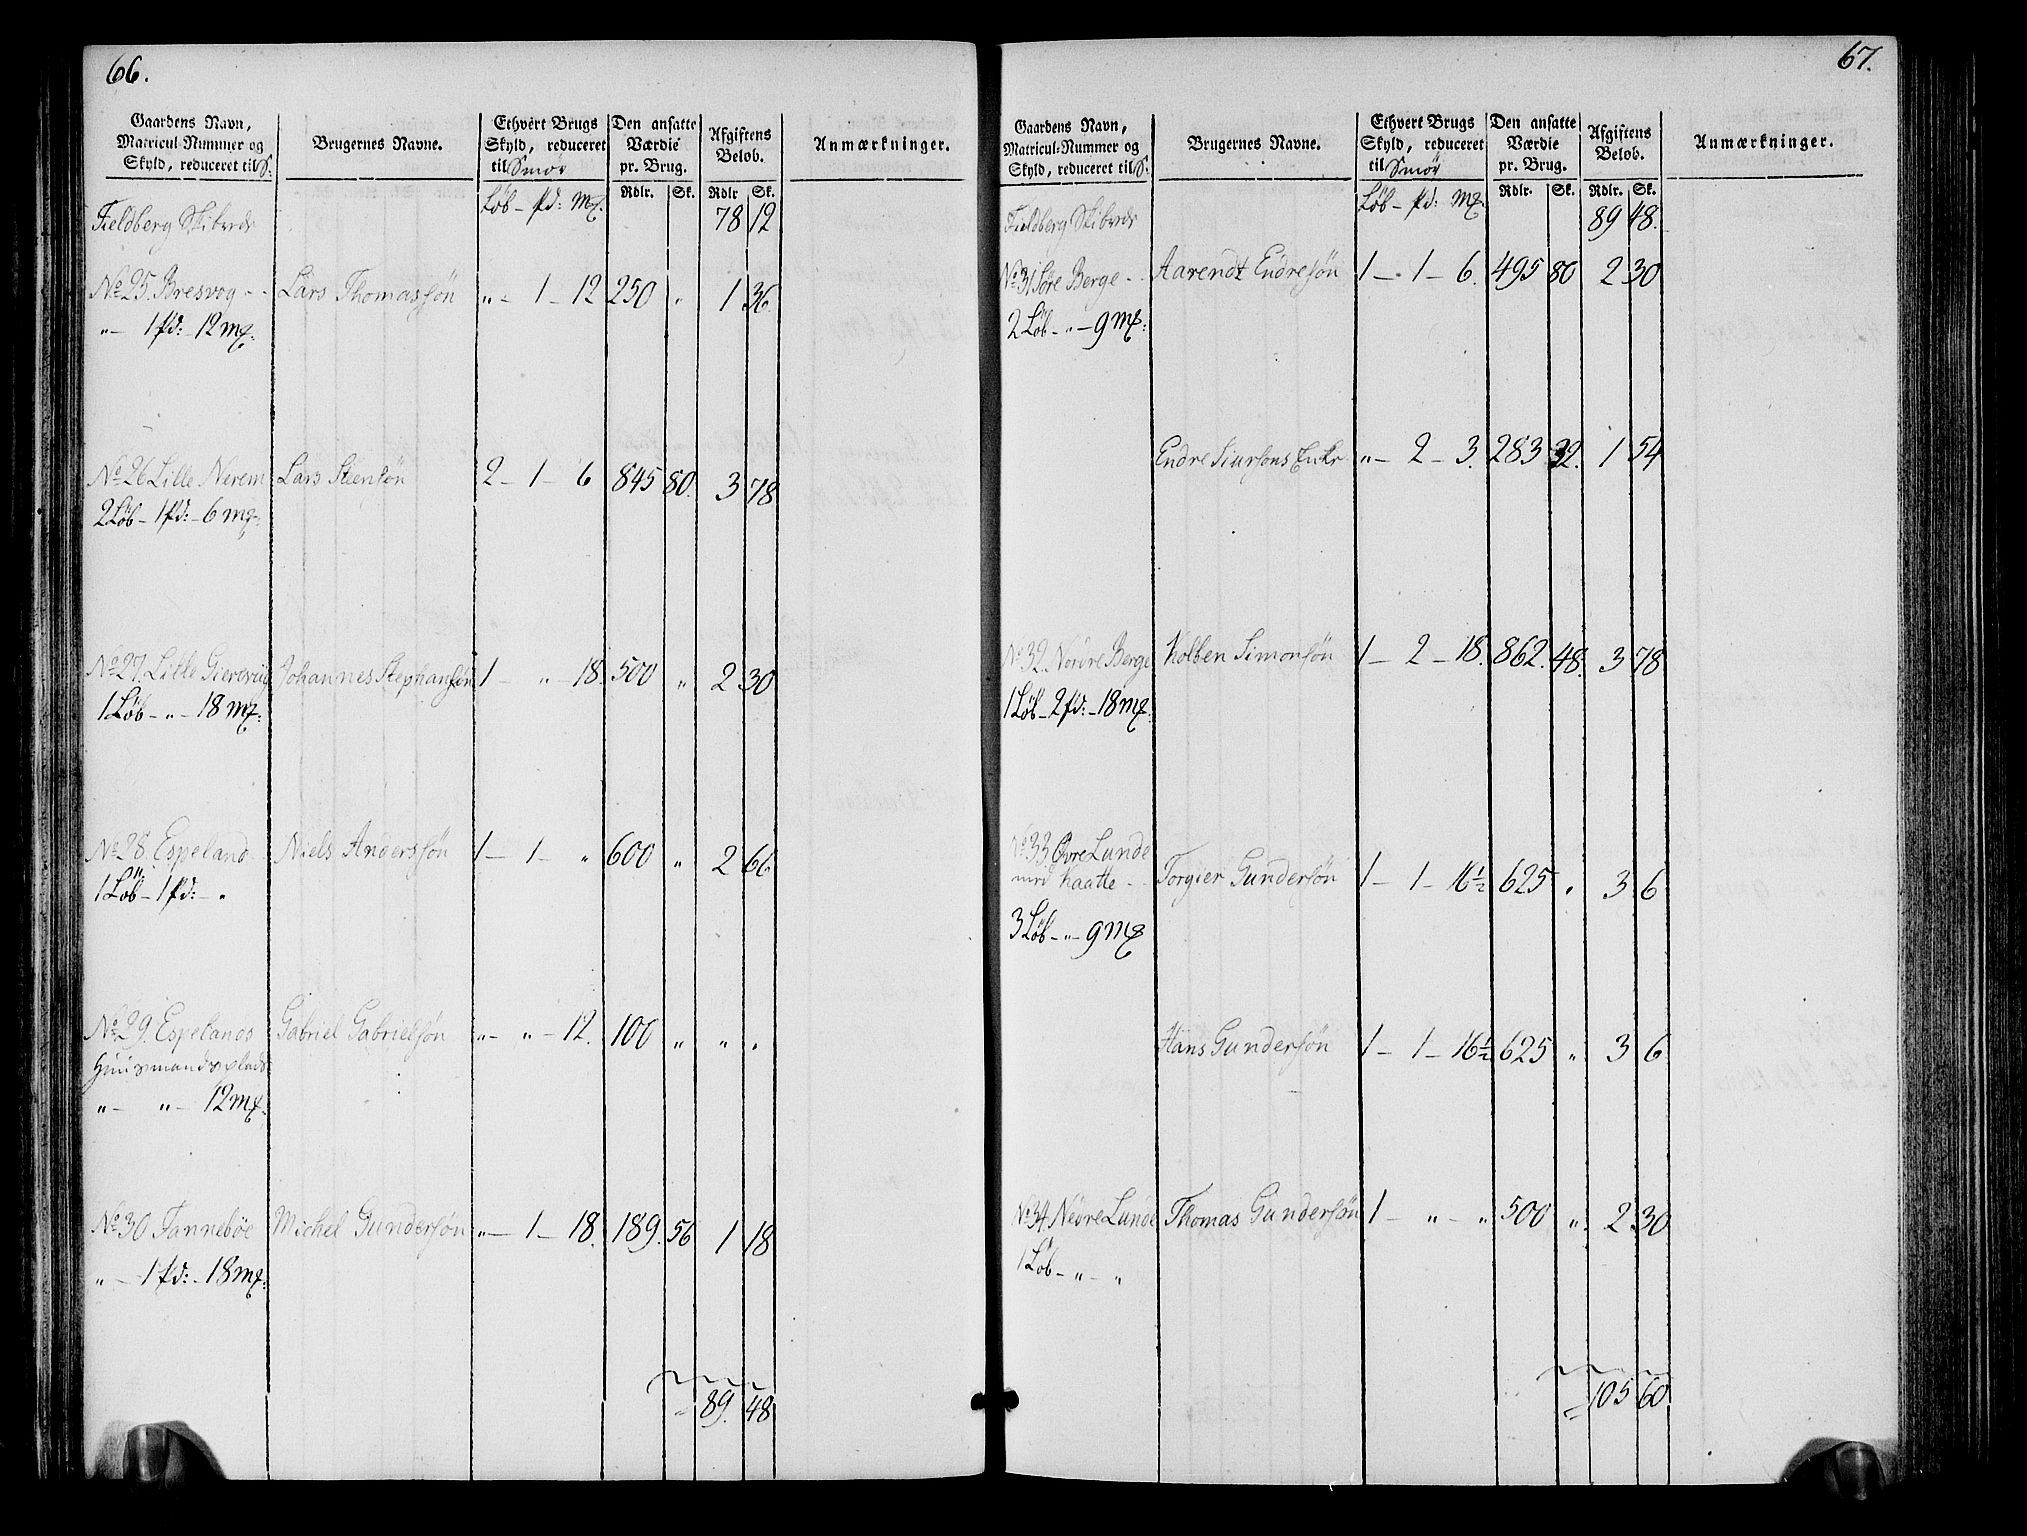 66.
Gaardens Navn, Matricul-Nummer og Skyld, reduceret til S: | Brugernes Navne. | Ethvert Brugs Skyld, reduceret til Smør | Den ansatte Værdie pr. Brug. | Afgiftens Beløb. | Anmærkninger.
Løb - pd: mk. | Rdlr. | Sk. | Rdlr | Sk.
Fieldberg Skibrede | 78 | 12
No 25. Bresvog - - | Lars Thomassøn | " - 1 - 12 | 250 | " | 1 | 36.
" - 1 pd: - 12 mk:
No 26 Lille Nerem | Lars Steensøn | 2 - 1 - 6 | 845 | 80. | 3 | 78
2 Løb - 1 pd: - 6 mk:
No 27. Litle Giersvig | Johannes Stephansøn | 1 - " - 18. | 500 | " | 2 | 30
1 Løb - " - 18 mk:
No 28. Espeland | Niels Anderssøn | 1 - 1 - " | 600 | " | 2 | 66
1 Løb - 1 pd: - "
No 29. Espelands | Gabriel Gabrielsøn | " - " - 12. | 100 | " | " | "
Huusmandsplads
" - " - 12 mk:
No 30 Tannebøe | Michel Gundersøn | " - 1 - 18. | 189. | 56 | 1 | 18
" - 1 pd: - 18 mk:
89. | 48
67.
Gaardens Navn, Matricul-Nummer og Skyld, reduceret til S: | Brugernes Navne. | Ethvert Brugs Skyld, reduceret til Smør | Den ansatte Værdie pr. Brug. | Afgiftens Beløb. | Anmærkninger.
Løb - pd: mk. | Rdlr. | Sk. | Rdlr. | Sk.
Fieldberg Skibrede | 89 | 48.
No 31 Søre Berge - - | Aarendt Endresøn | 1 - 1 - 6. | 495 | 80 | 2 | 30
2 Løb - " - 9 mk:
Endre Siursøns Enke | " - 2 - 3. | 283 | 32. | 1 | 54
No 32. Nordre Berge | Kolben Simonsøn | 1 - 2 - 18. | 862. | 48. | 3 | 78
1 Løb - 2 pd: - 18 mk:
No 33 Øvre Lunde
med Kaatte - - | Torgier Gundersøn | 1 - 1 - 16 1/2 | 625 | " | 3 | 6
3 Løb - " - 9 mk
Hans Gundersøn | 1 - 1 - 16 1/2 | 625 | " | 3 | 6
No 34. Nedre Lunde | Thomas Gundersøn | 1 - " - " | 500 | " | 2 | 30
1 Løb - " - "
105 | 60